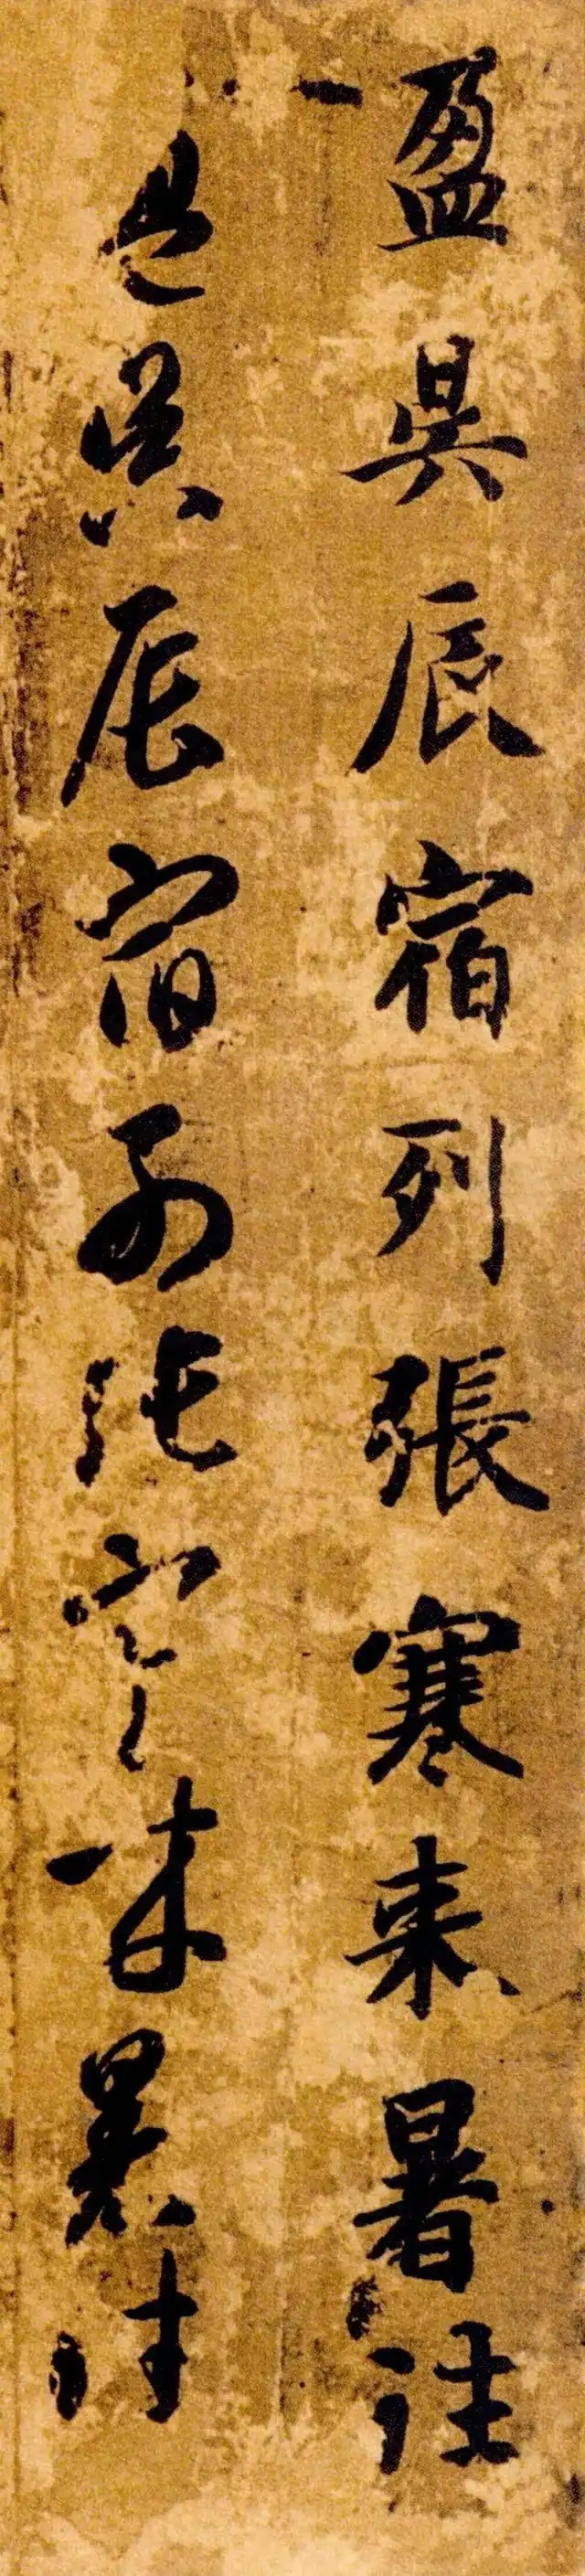 盈昃辰宿列張寒來暑往
盈昃辰宿列張寒來暑往